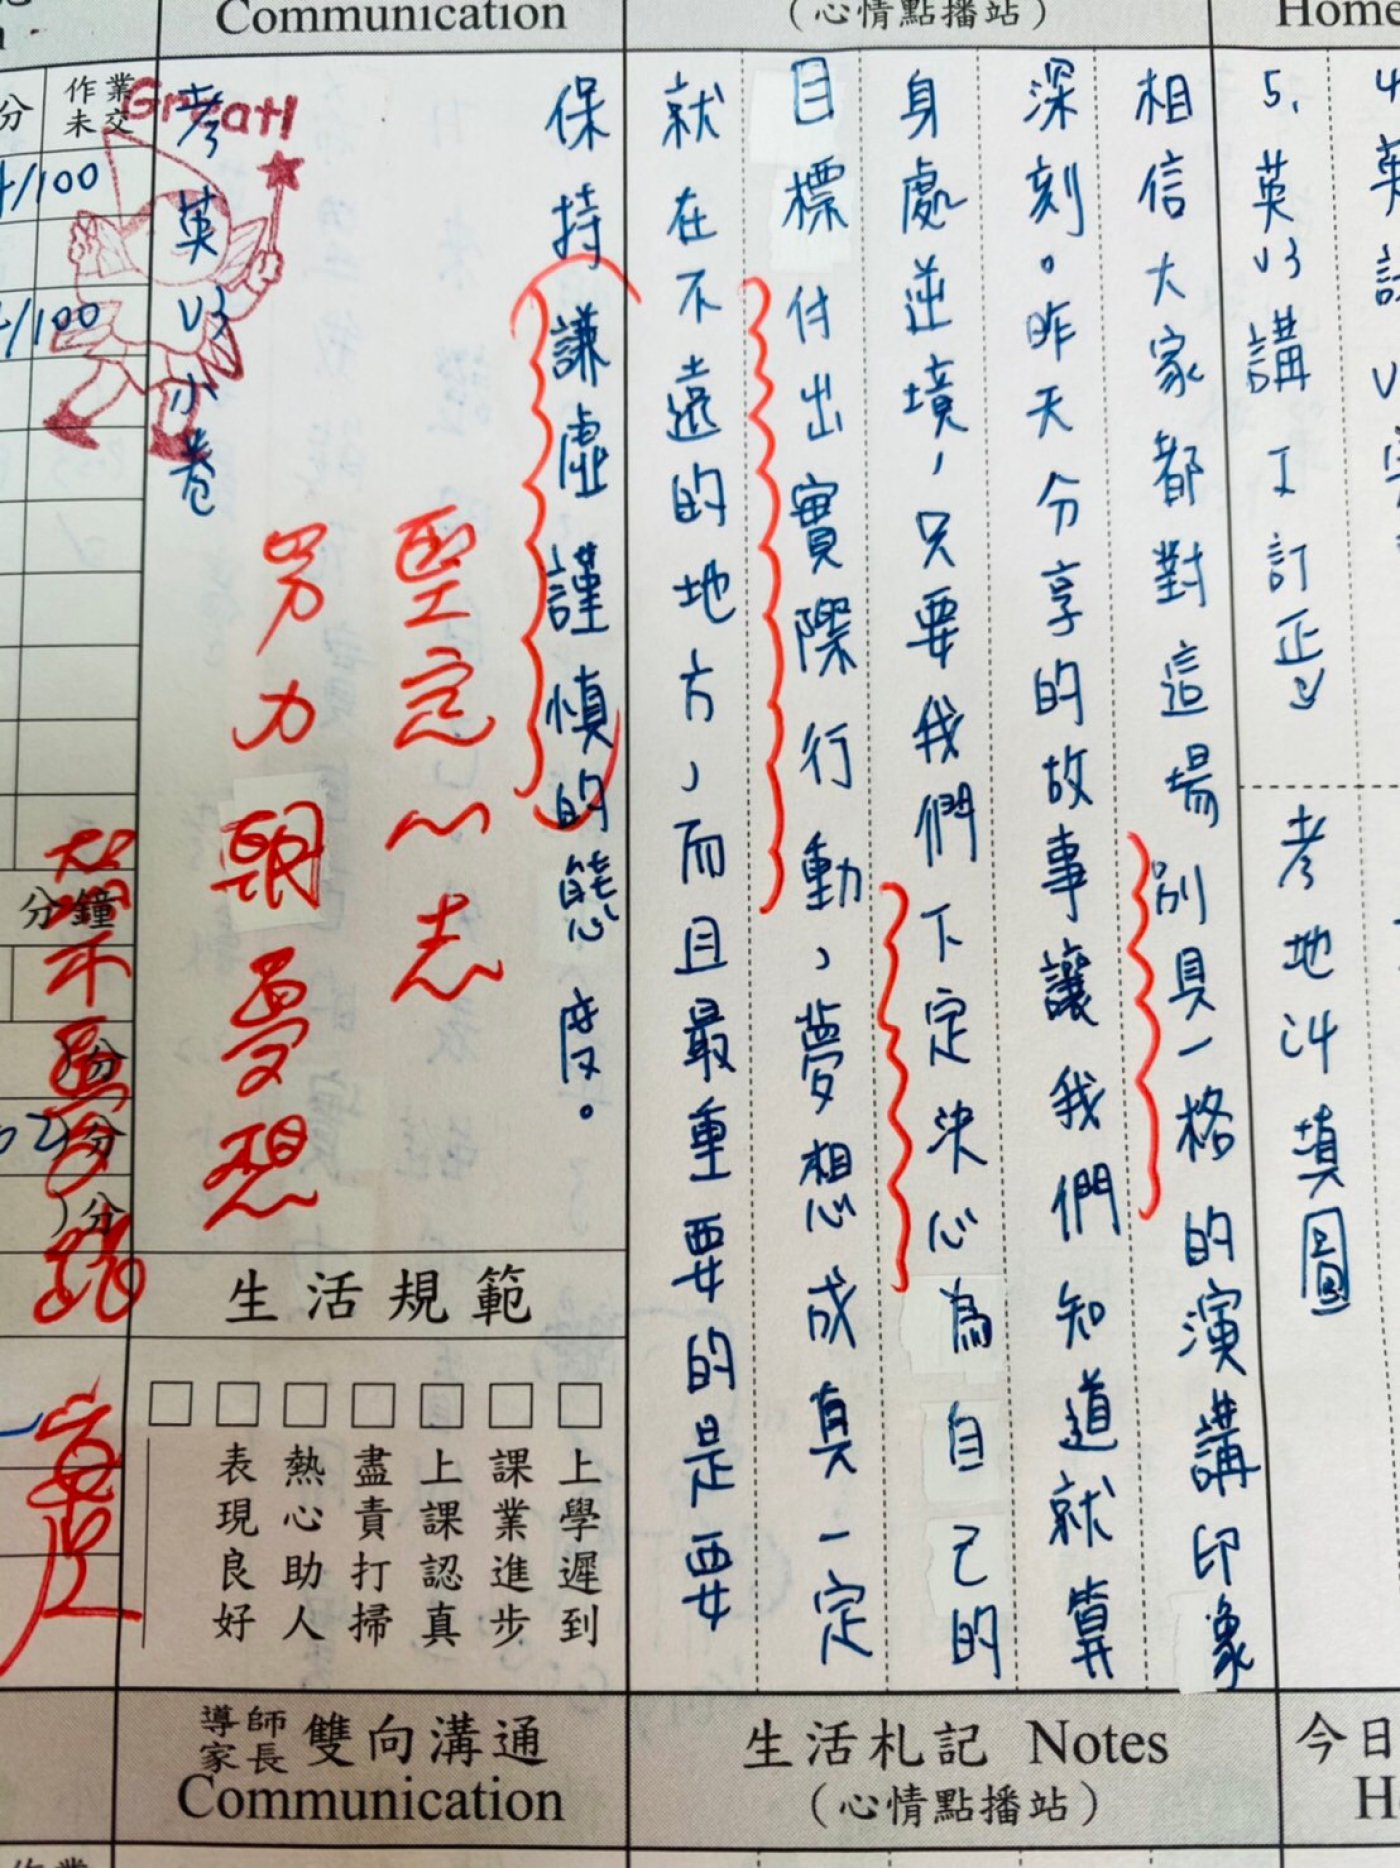 Communication
（心情點播站）
Home
5、英V3講J訂正
考地L4填圖
相信大家都對這場別具一格的演講印象
深刻。昨天分享的故事讓我們知道就算
身處逆境，只要我們下定決心為自己的
目標付出實際行動，夢想成真一定
就在不遠的地方，而且最重要的是要
保持謙虛謹慎的態度。
Great!
考英V3小卷
堅定心志
努力朝夢想
作業未交
分
/100
/100
分鐘
分
分
分
生活規範
上學遲到
課業進步
上課認真
盡責打掃
熱心助人
表現良好
導師家長雙向溝通
Communication
生活札記 Notes
（心情點播站）
今日
H
作業